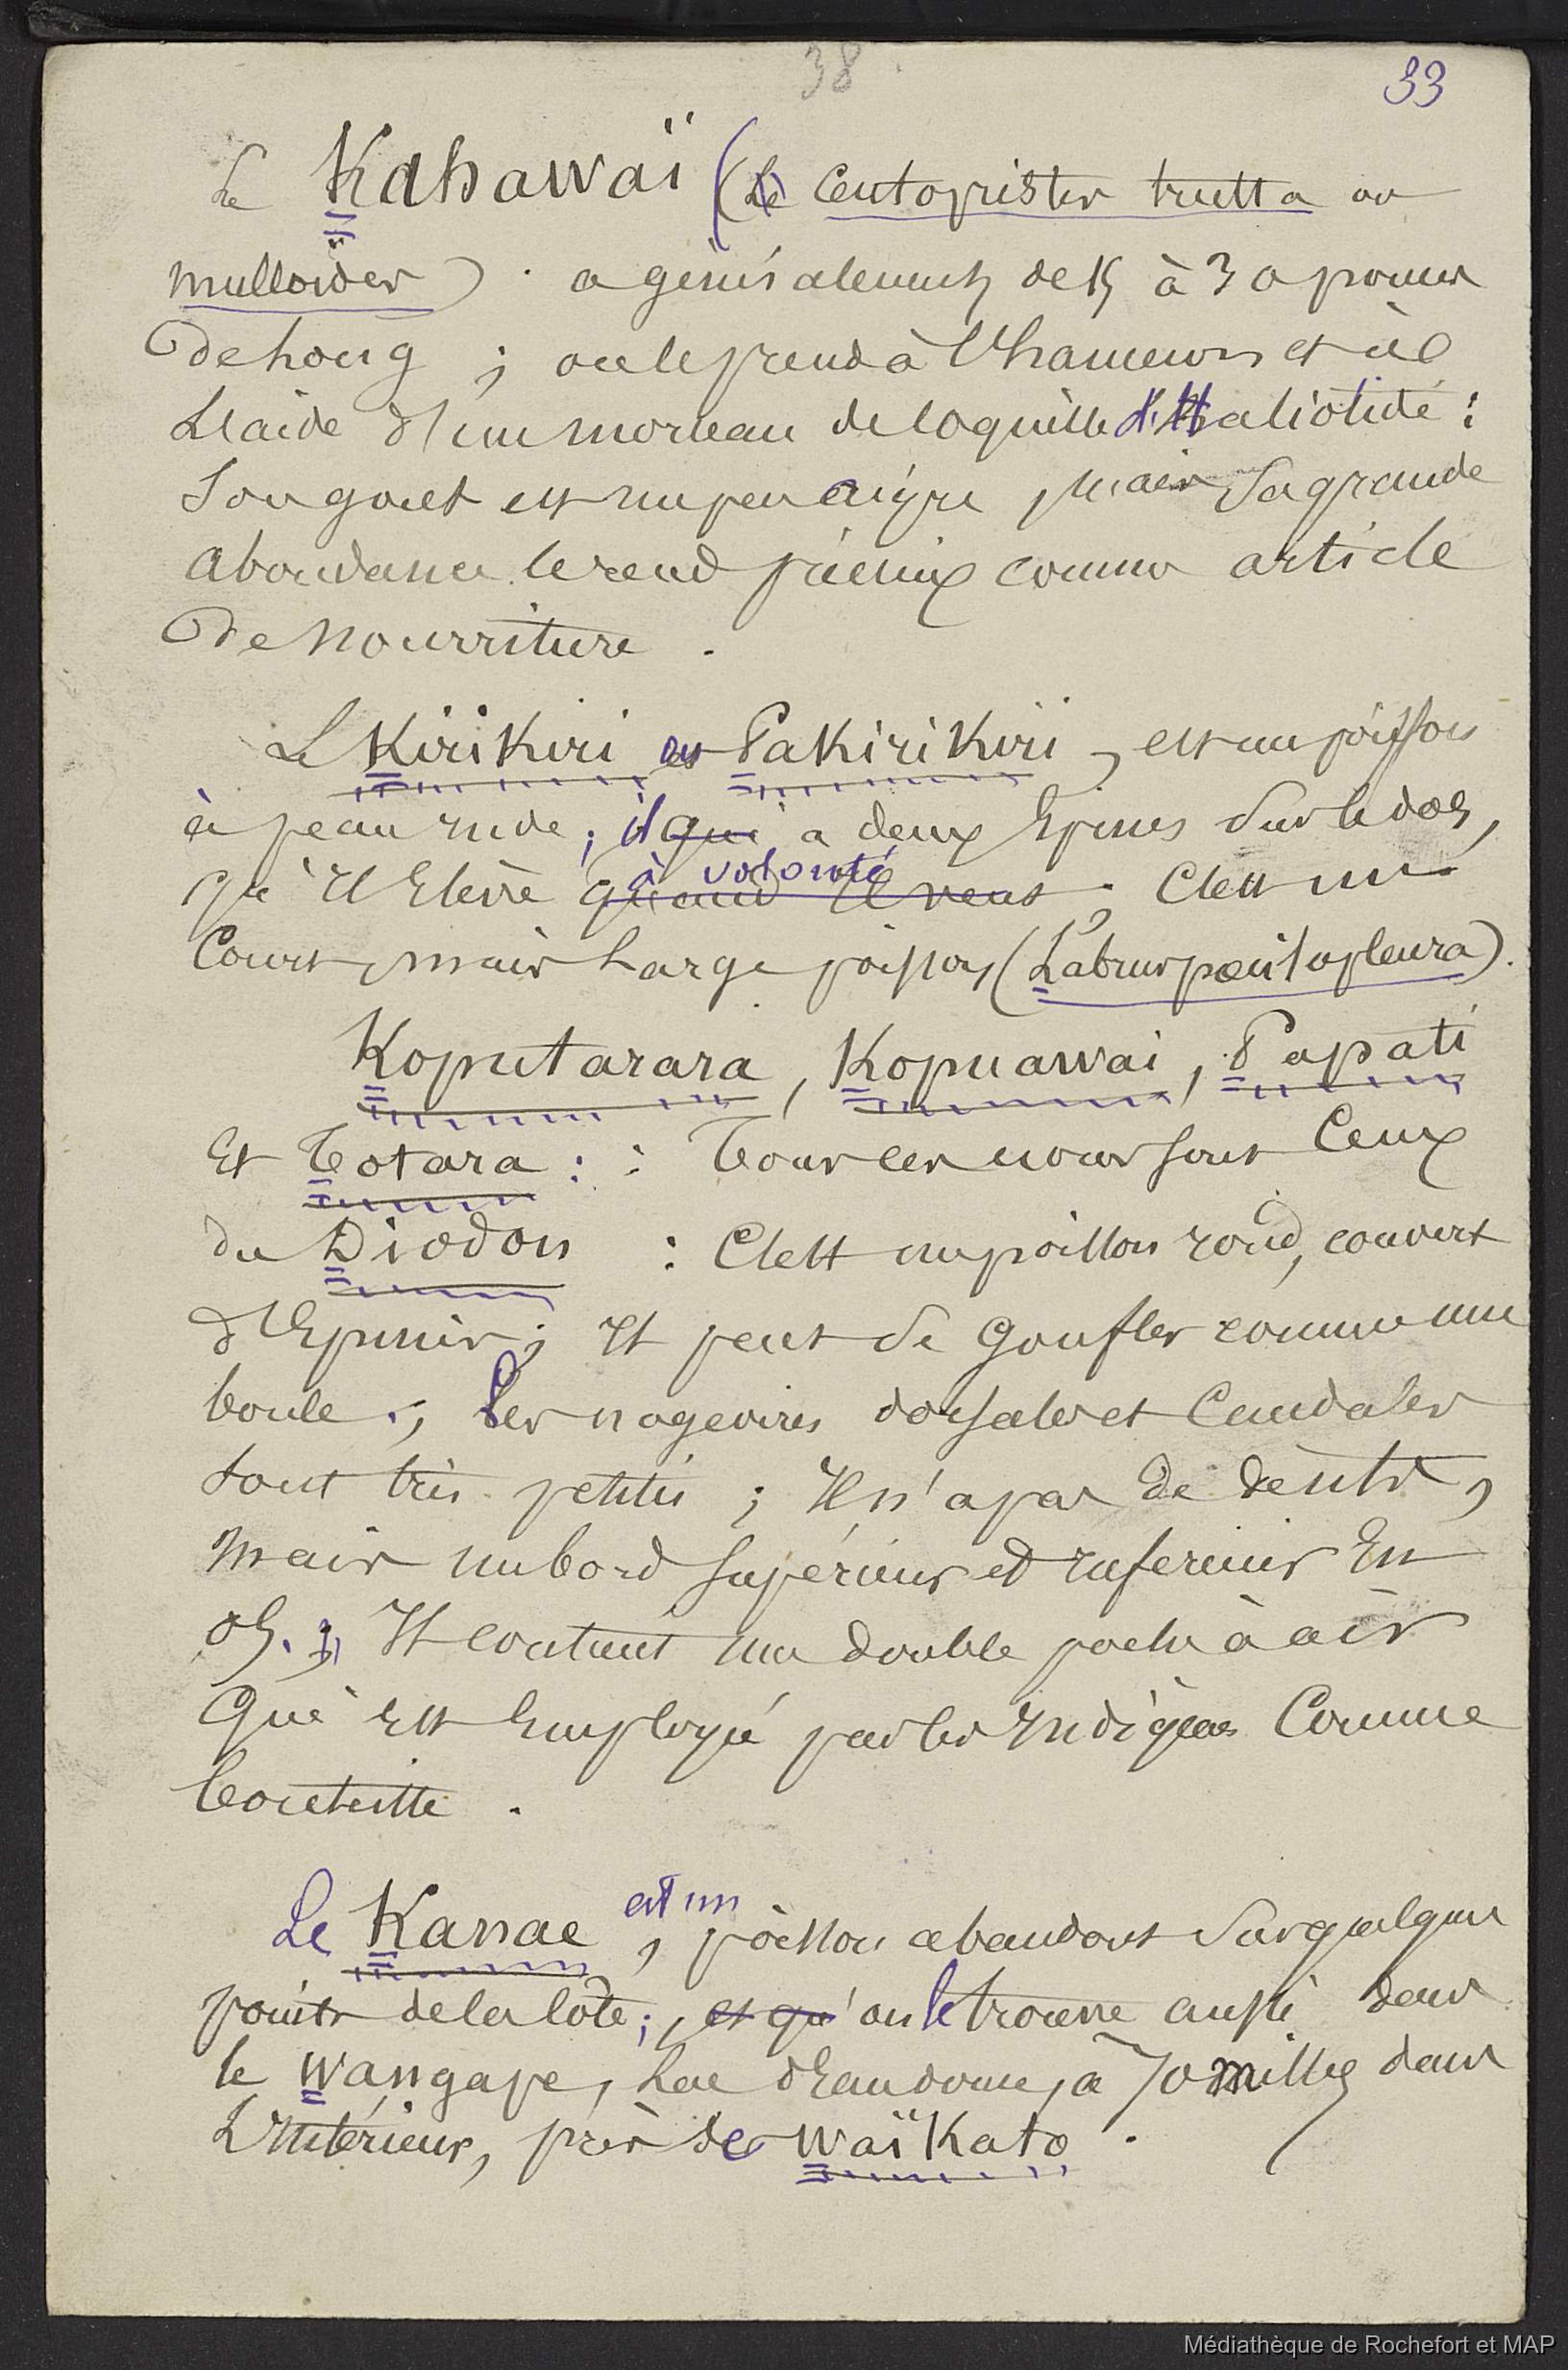 38.
33
Le Kahawaï (Le Centopristes trutta ou
mulloïdes). a généralement de 15 à 30 pouces
de long ; on le prend à l'hameçon et à
L'aide d'un morceau de coquille d'Haliotide :
Son goût est un peu aigre, mais Sa grande
abondance le rend précieux comme article
de Nourriture .
Le Kirikiri ou Pakirikiri, est un poisson
à peau rude ; il qui a deux Epines Sur le dos,
à volonté
qu'il Elève quand il veut ; C'est un
Court, mais Large poisson (Labrus pœcilopleura).
Koputarara, Kopuawai, Papati
Et Totara : : Tous ces noms sont Ceux
du Diodon : C'est un poisson rond, couvert
d'Epines ; Il peut Se Gonfler comme une
boule . ; Les nageoires dorsales et Caudales
Sont très petites ; Il n'a pas de dents,
Mais un bord Supérieur et Inférieur En
os. ; Il contient une double poche à air
Qui Est Employée par les Indigènes Comme
bouteille .
est un
Le Kanae, poisson abondant Sur quelques
points de la Côte ; , et qu'on le trouve aussi dans
le Wangape, Lac d'Eau douce, à 70 milles dans
L'Intérieur, près de Waïkato .
Médiathèque de Rochefort et MAP